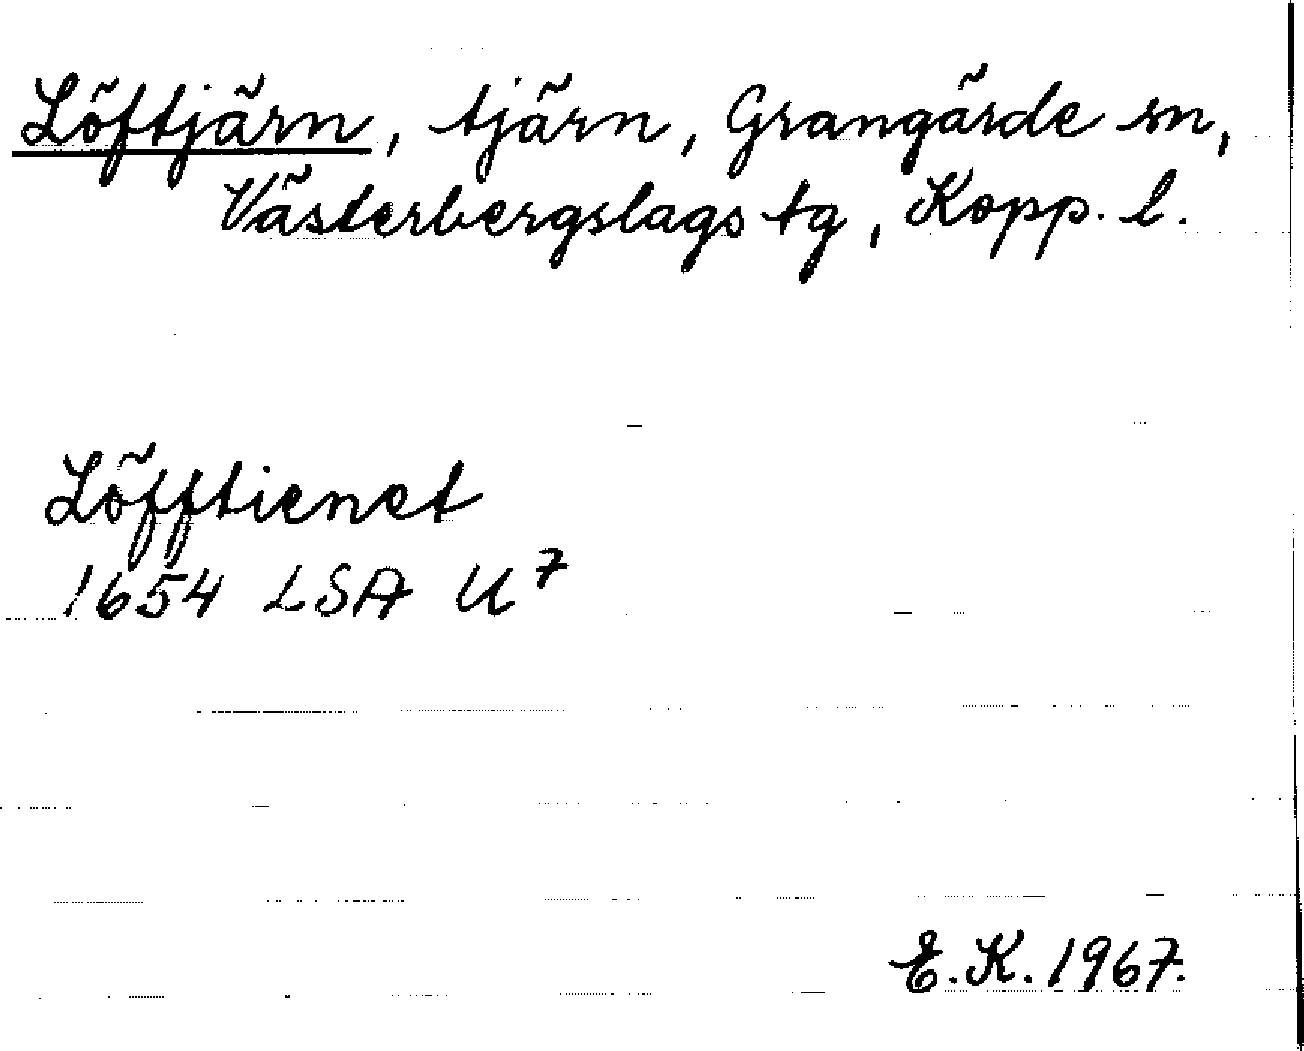 Löftjärn, tjärn, Grangärde sn,
Västerbergslags tg, Kopp. l.
Löfftienet
1654 LSA U⁷
E.K. 1967.